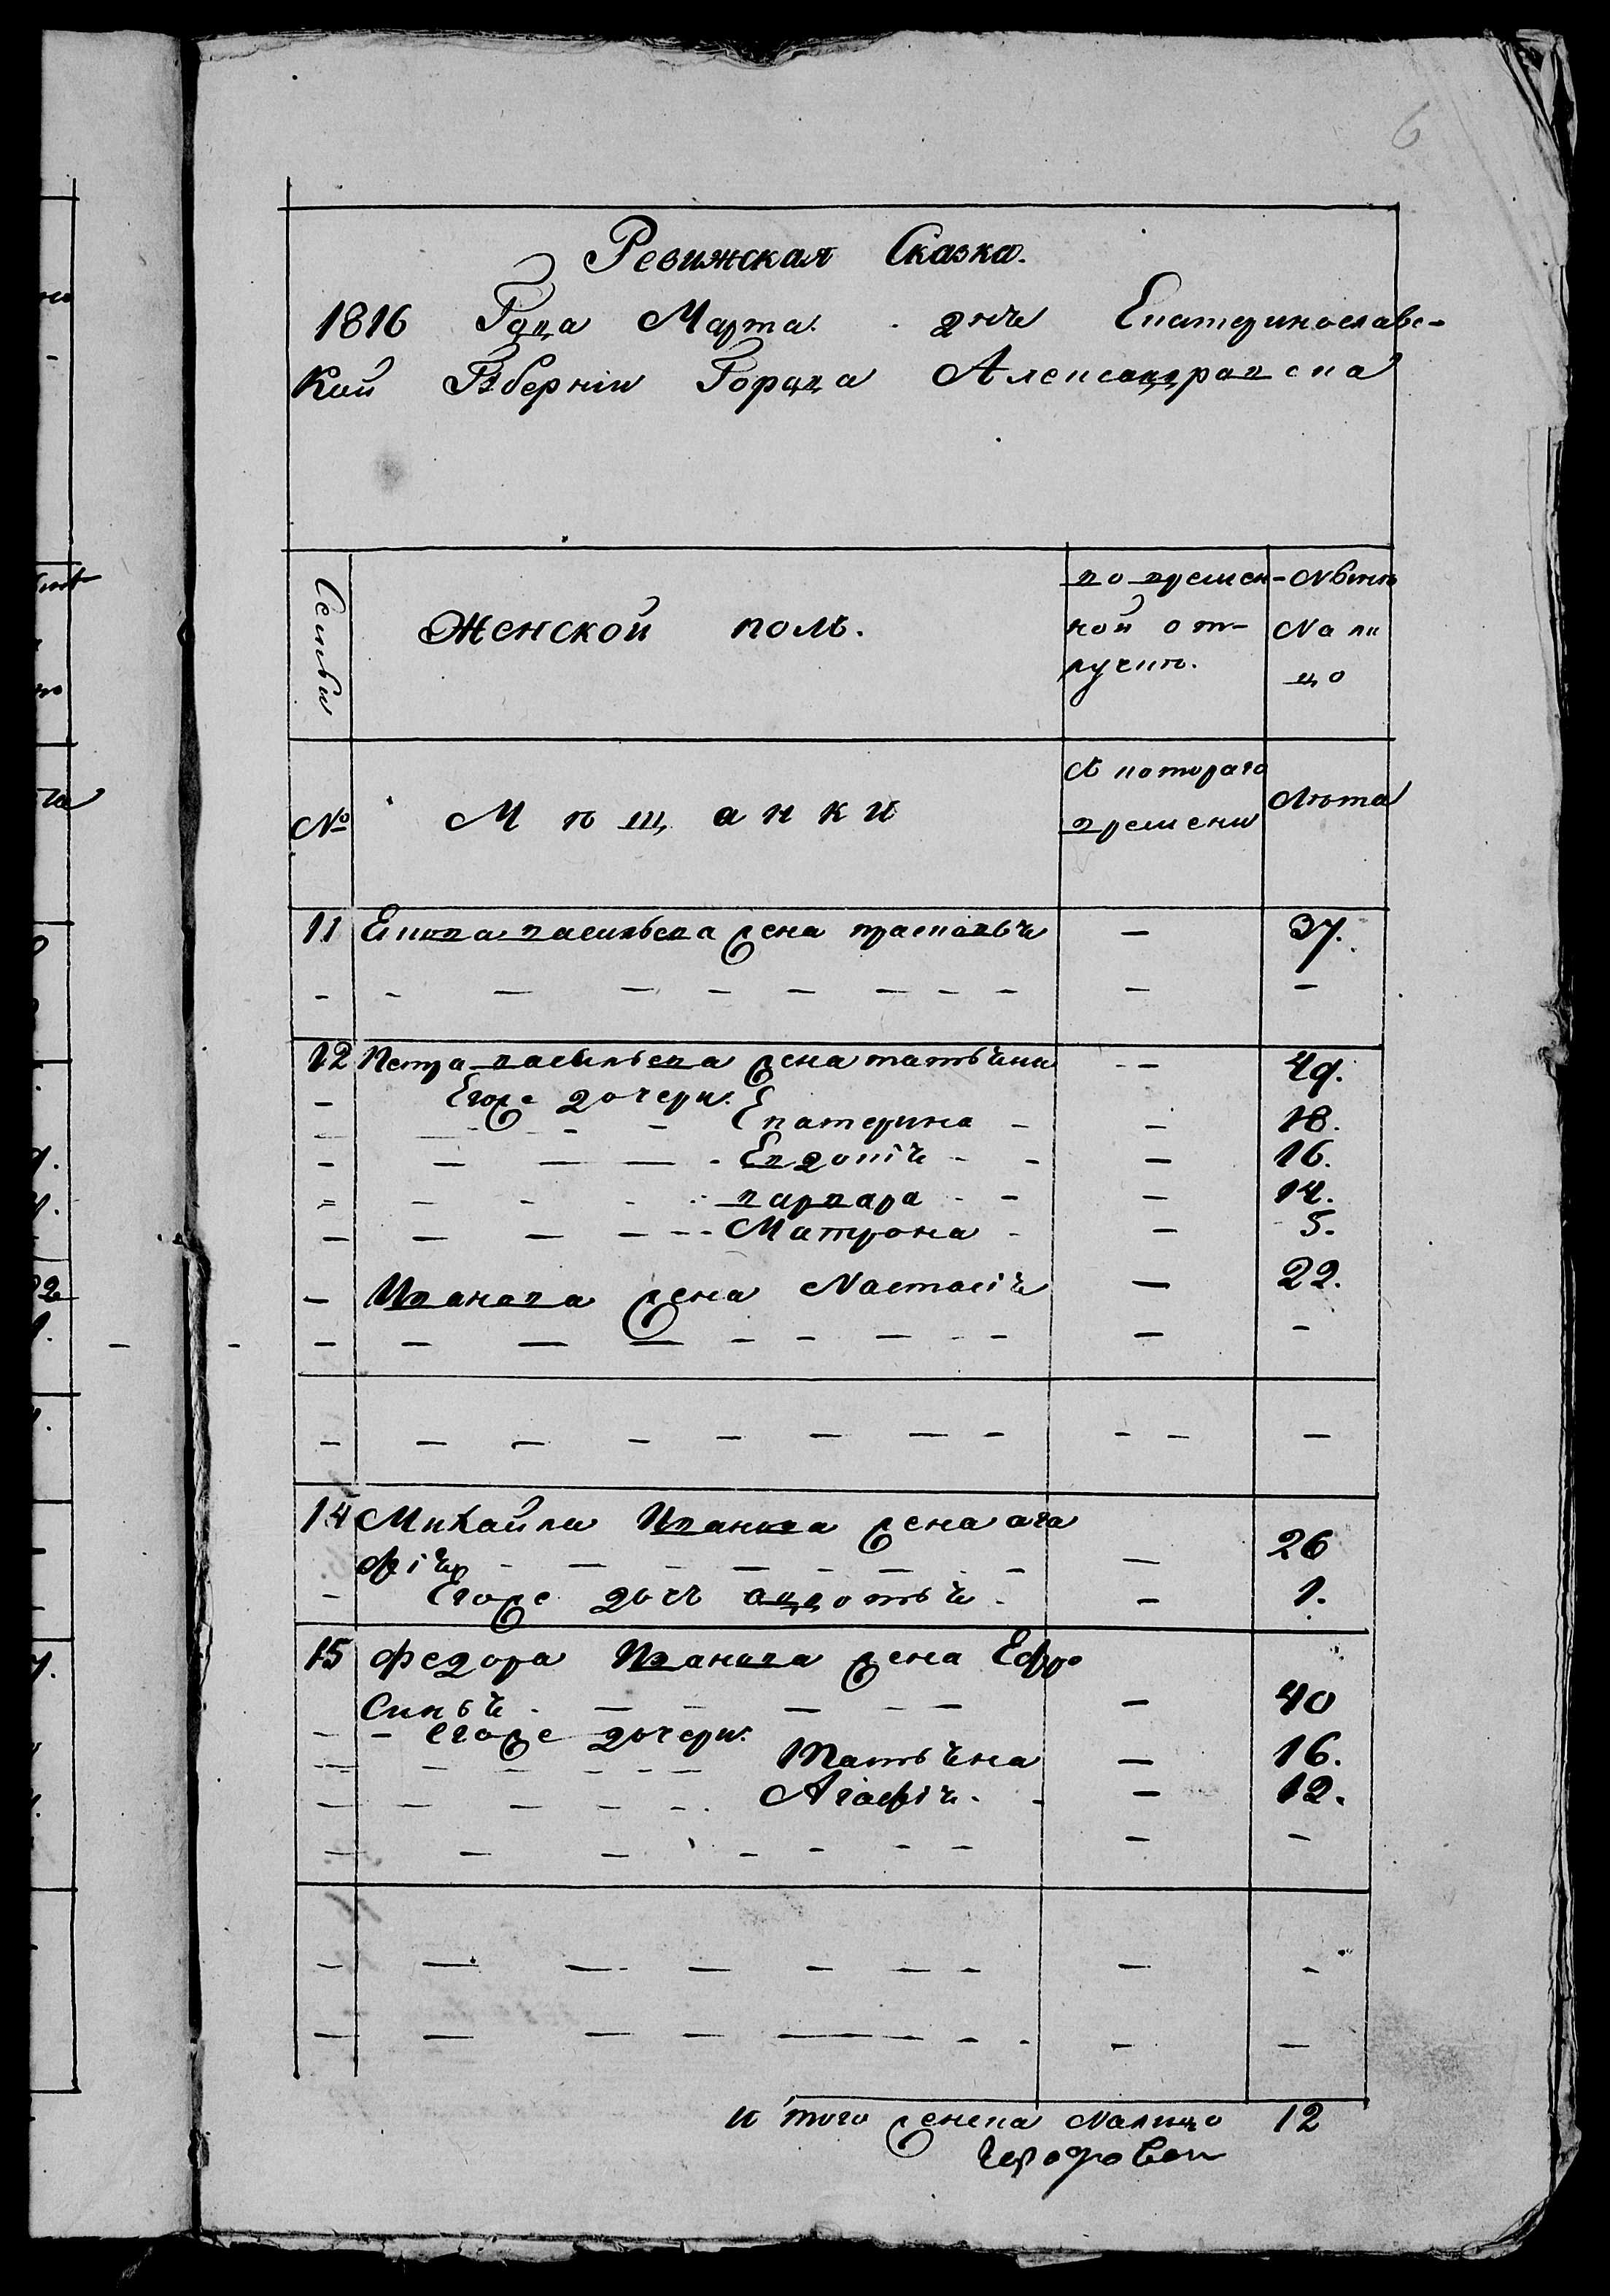 6
Ревижская Сказка.
1816 Года Марта дня Екатеринославс-
кой Губерніи Города Александравска
Семьи
Женской полъ.
во времен-
ной от-
лучкѣ.
Нынѣ
На ли
цо
№
Мѣщанки
С котораго
времени
Лѣта
11 Якова васильева жена прасковья — 37.
12 Петра васильева жена татьяна — 49.
Егоже дочери.
Екатерина — 18.
Евдокія — 16.
варвара — 14.
Матрона — 5.
Иванова жена Настасія — 22.
14 Михайли Иванова жена ага
фія — 26
Егоже дочь авдотья — 1.
15 Федора Иванова жена Ефро
синья — 40
егоже дочери.
Татьяна — 16.
Агафія — 12.
И того женска Налицо 12